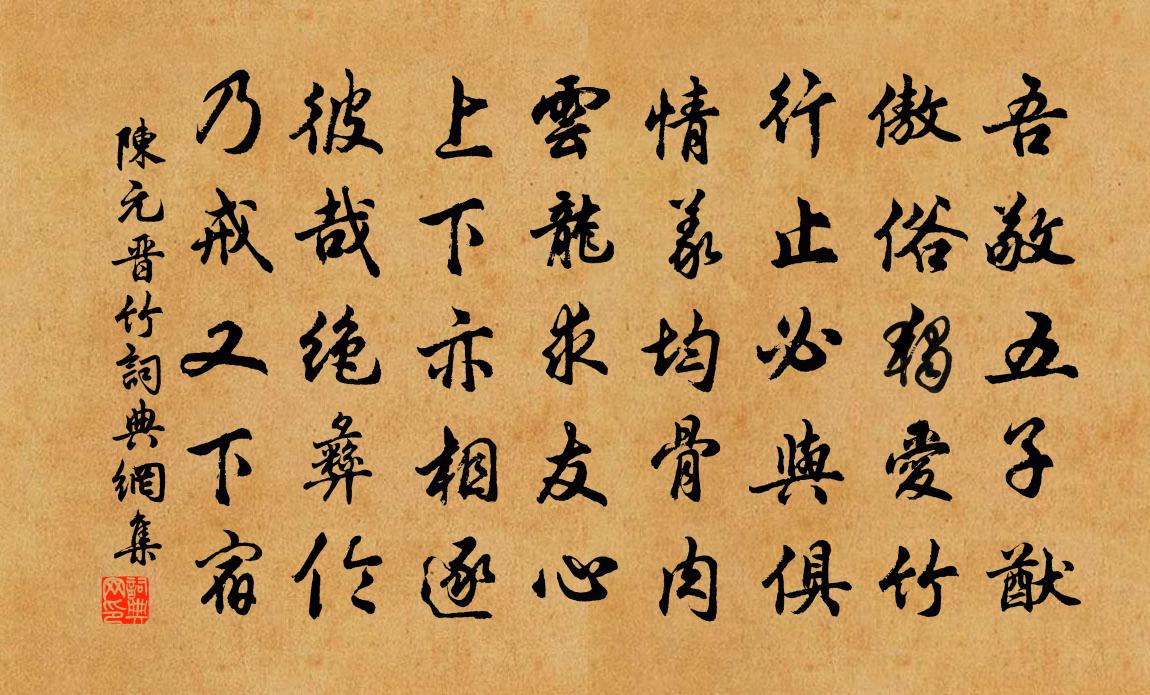 吾敬五子猷
傲俗獨愛竹
行止必與俱
情義均骨肉
雲龍求友心
上下亦相逐
彼哉絶彝伦
乃戒又下宿
陳元晋竹詞典網集
詞典網印